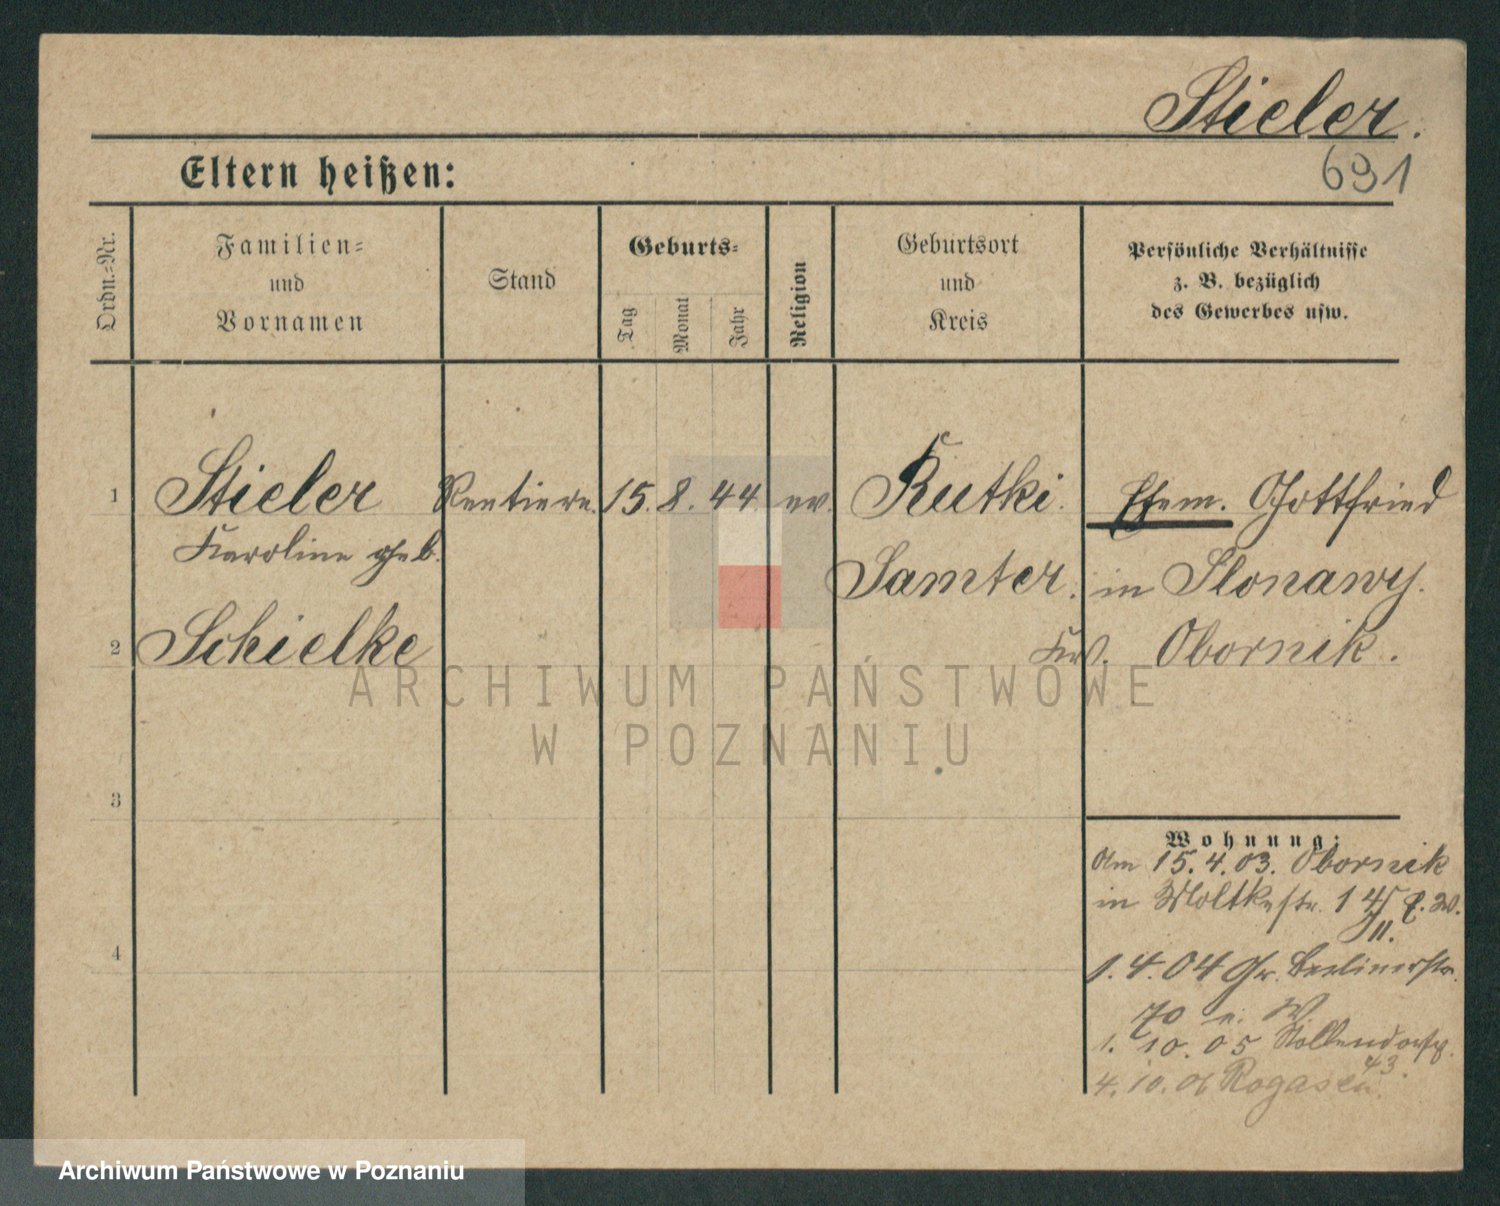 Stieler.
691
Eltern heißen:
Ordn.-Nr.
Familien-
und
Vornamen
Stand
Geburts-
Tag
Monat
Jahr
Religion
Geburtsort
und
Kreis
Persönliche Verhältnisse
z. B. bezüglich
des Gewerbes usw.
1 Stieler Rentiere. 15. 8. 44 ev. Rutki. Ehem. Gottfried
Karoline geb. Samter. in Slonawy.
2 Schielke Kr. Obornik.
ARCHIWUM PAŃSTWOWE
W POZNANIU
3
Wohnung:
Am 15.4.03. Obornik
in Moltkestr. 14
II.
4
1.4.04 Gr. Berlinerstr.
70 e. W.
1.10.05 Nollendorfstr.
43.
4.10.06 Rogasen.
Archiwum Państwowe w Poznaniu